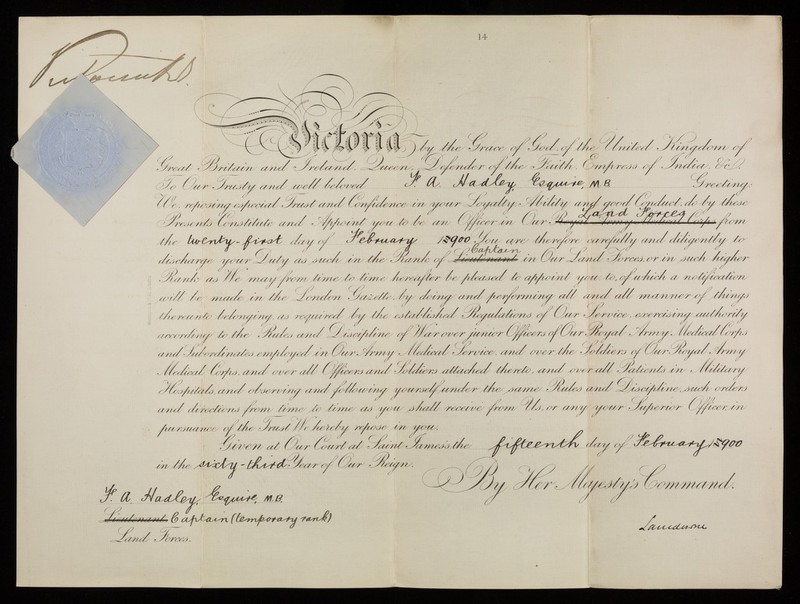 14
Victoria by the Grace of God, of the United Kingdom of
Great Britain and Ireland, Queen, Defender of the Faith, Empress of India, &c.
To Our Trusty and well beloved F. A. Hadley, Esquire, M B Greeting.
We, reposing especial Trust and Confidence in your Loyalty, Ability and good Conduct, do by these
Land Forces
Presents Constitute and Appoint you to be an Officer in Our Royal Army Medical Corps from
the twenty-first day of February 1900 You are therefore carefully and diligently to
Captain
discharge your Duty as such in the Rank of Lieutenant in Our Land Forces, or in such higher
Rank as We may from time to time hereafter be pleased to appoint you to, of which a notification
will be made in the London Gazette, by doing and performing all and all manner of things
thereunto belonging, as required by the established Regulations of Our Service, exercising authority
according to the Rules and Discipline of War over junior Officers of Our Royal Army Medical Corps
and Subordinates employed in Our Army Medical Service, and over the Soldiers of Our Royal Army
Medical Corps, and over all Officers and Soldiers attached thereto, and over all Patients in Military
Hospitals, and observing and following yourself, under the same Rules and Discipline, such orders
and directions from time to time as you shall receive from Us, or any your Superior Officer, in
pursuance of the Trust We hereby repose in you.
Given at Our Court at Saint James's the fifteenth day of February 1900
in the sixty-third Year of Our Reign.
By Her Majesty's Command.
F. A. Hadley, Esquire, M.B.
Lieutenant Captain (temporary rank)
Land Forces.
Lansdowne